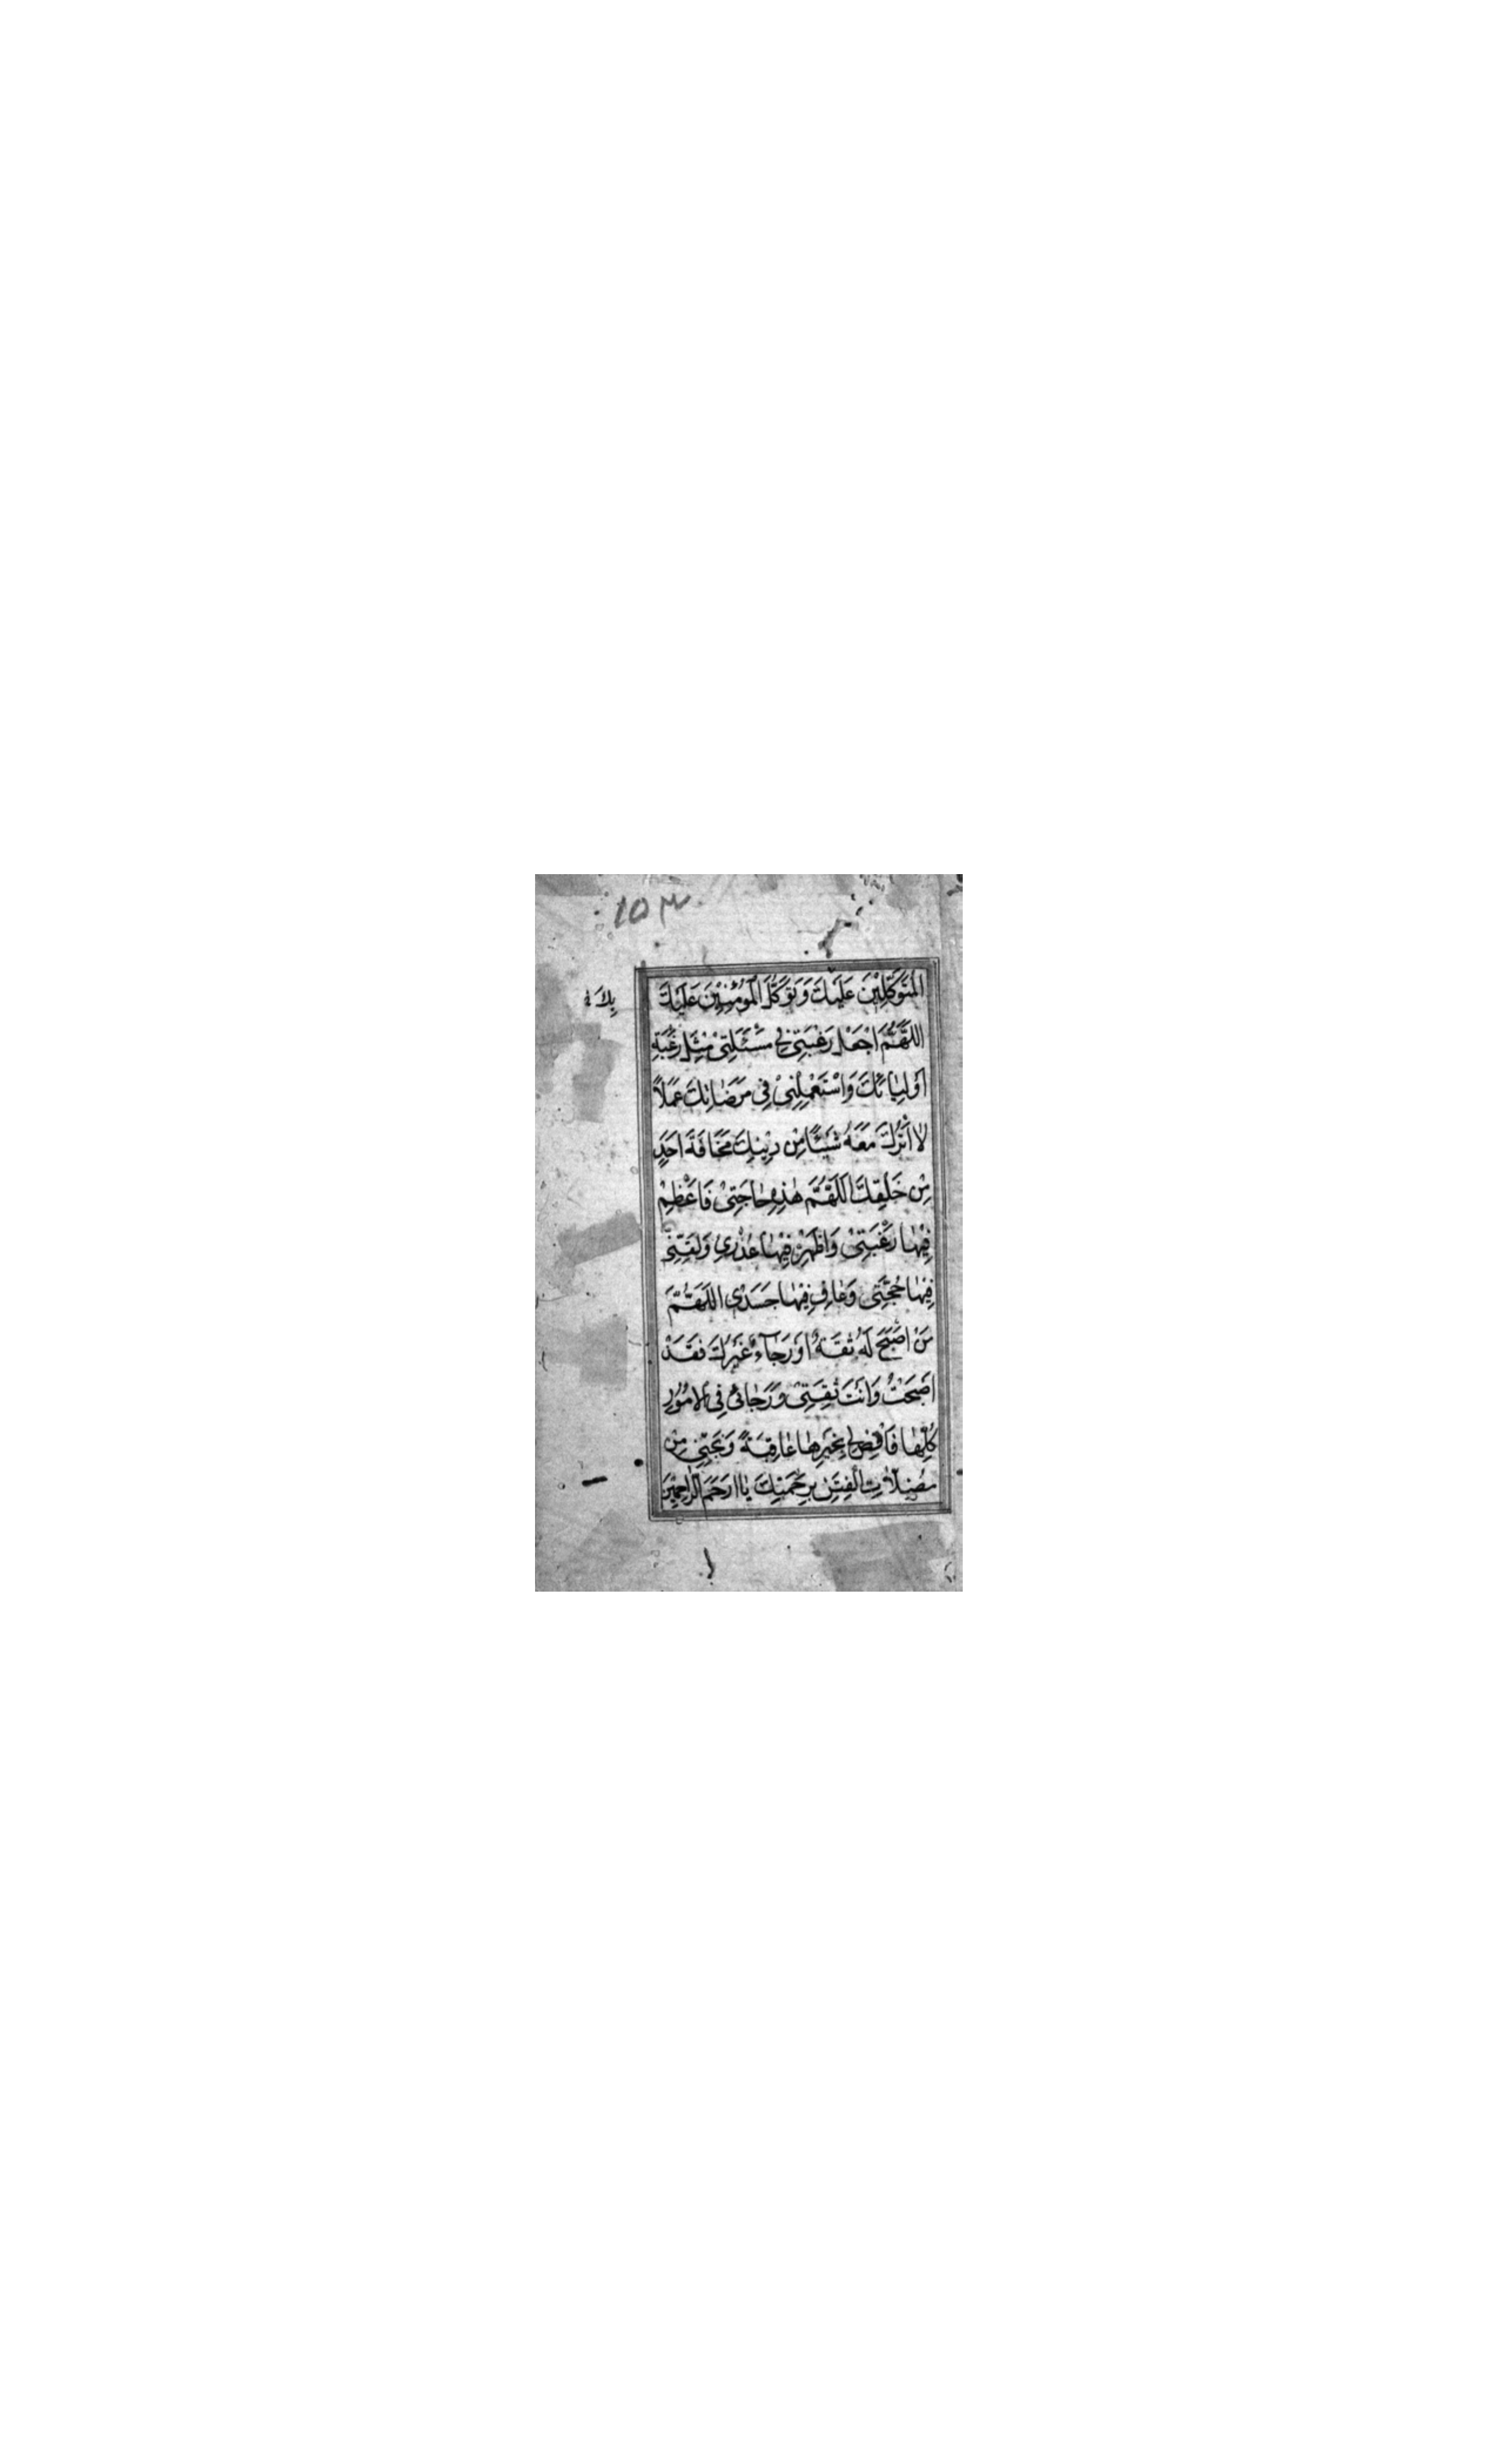 ١٥٣
المُتَوَكِّلِيْنَ عَلَيْكَ وَتَوَكُّلَ الْمُؤْمِنِيْنَ عَلَيْكَ
بِكَ
اللّٰهُمَّ اجْعَلْ رَغْبَتِىْ فِى مَسْئَلَتِىْ مِثْلَ رَغْبَةِ
اَوْلِيَائِكَ وَاسْتَعْمِلْنِىْ فِى مَرْضَاتِكَ عَمَلًا
لَا اَتْرُكُ مَعَهُ شَيْئًا مِنْ دِيْنِكَ مَخَافَةَ اَحَدٍ
مِنْ خَلْقِكَ اَللّٰهُمَّ هٰذِهِ حَاجَتِىْ فَاَعْظِمْ
فِيْهَا رَغْبَتِىْ وَاَظْهِرْ فِيْهَا عُذْرِى وَلَقِّنِّىْ
فِيْهَا حُجَّتِى وَعَافِ فِيْهَا جَسَدِىْ اللّٰهُمَّ
مَنْ اَصْبَحَ لَهُ ثِقَةٌ اَوْ رَجَاءٌ غَيْرُكَ فَقَدْ
اَصْبَحْتُ وَاَنْتَ ثِقَتِىْ وَرَجَائِىْ فِى الْاُمُوْرِ
كُلِّهَا فَاقْضِ لِى بِخَيْرِهَا عَاقِبَةً وَنَجِّنِى مِنْ
مُضِلَّاتِ الْفِتَنِ بِرَحْمَتِكَ يَا اَرْحَمَ الرَّاحِمِيْنَ